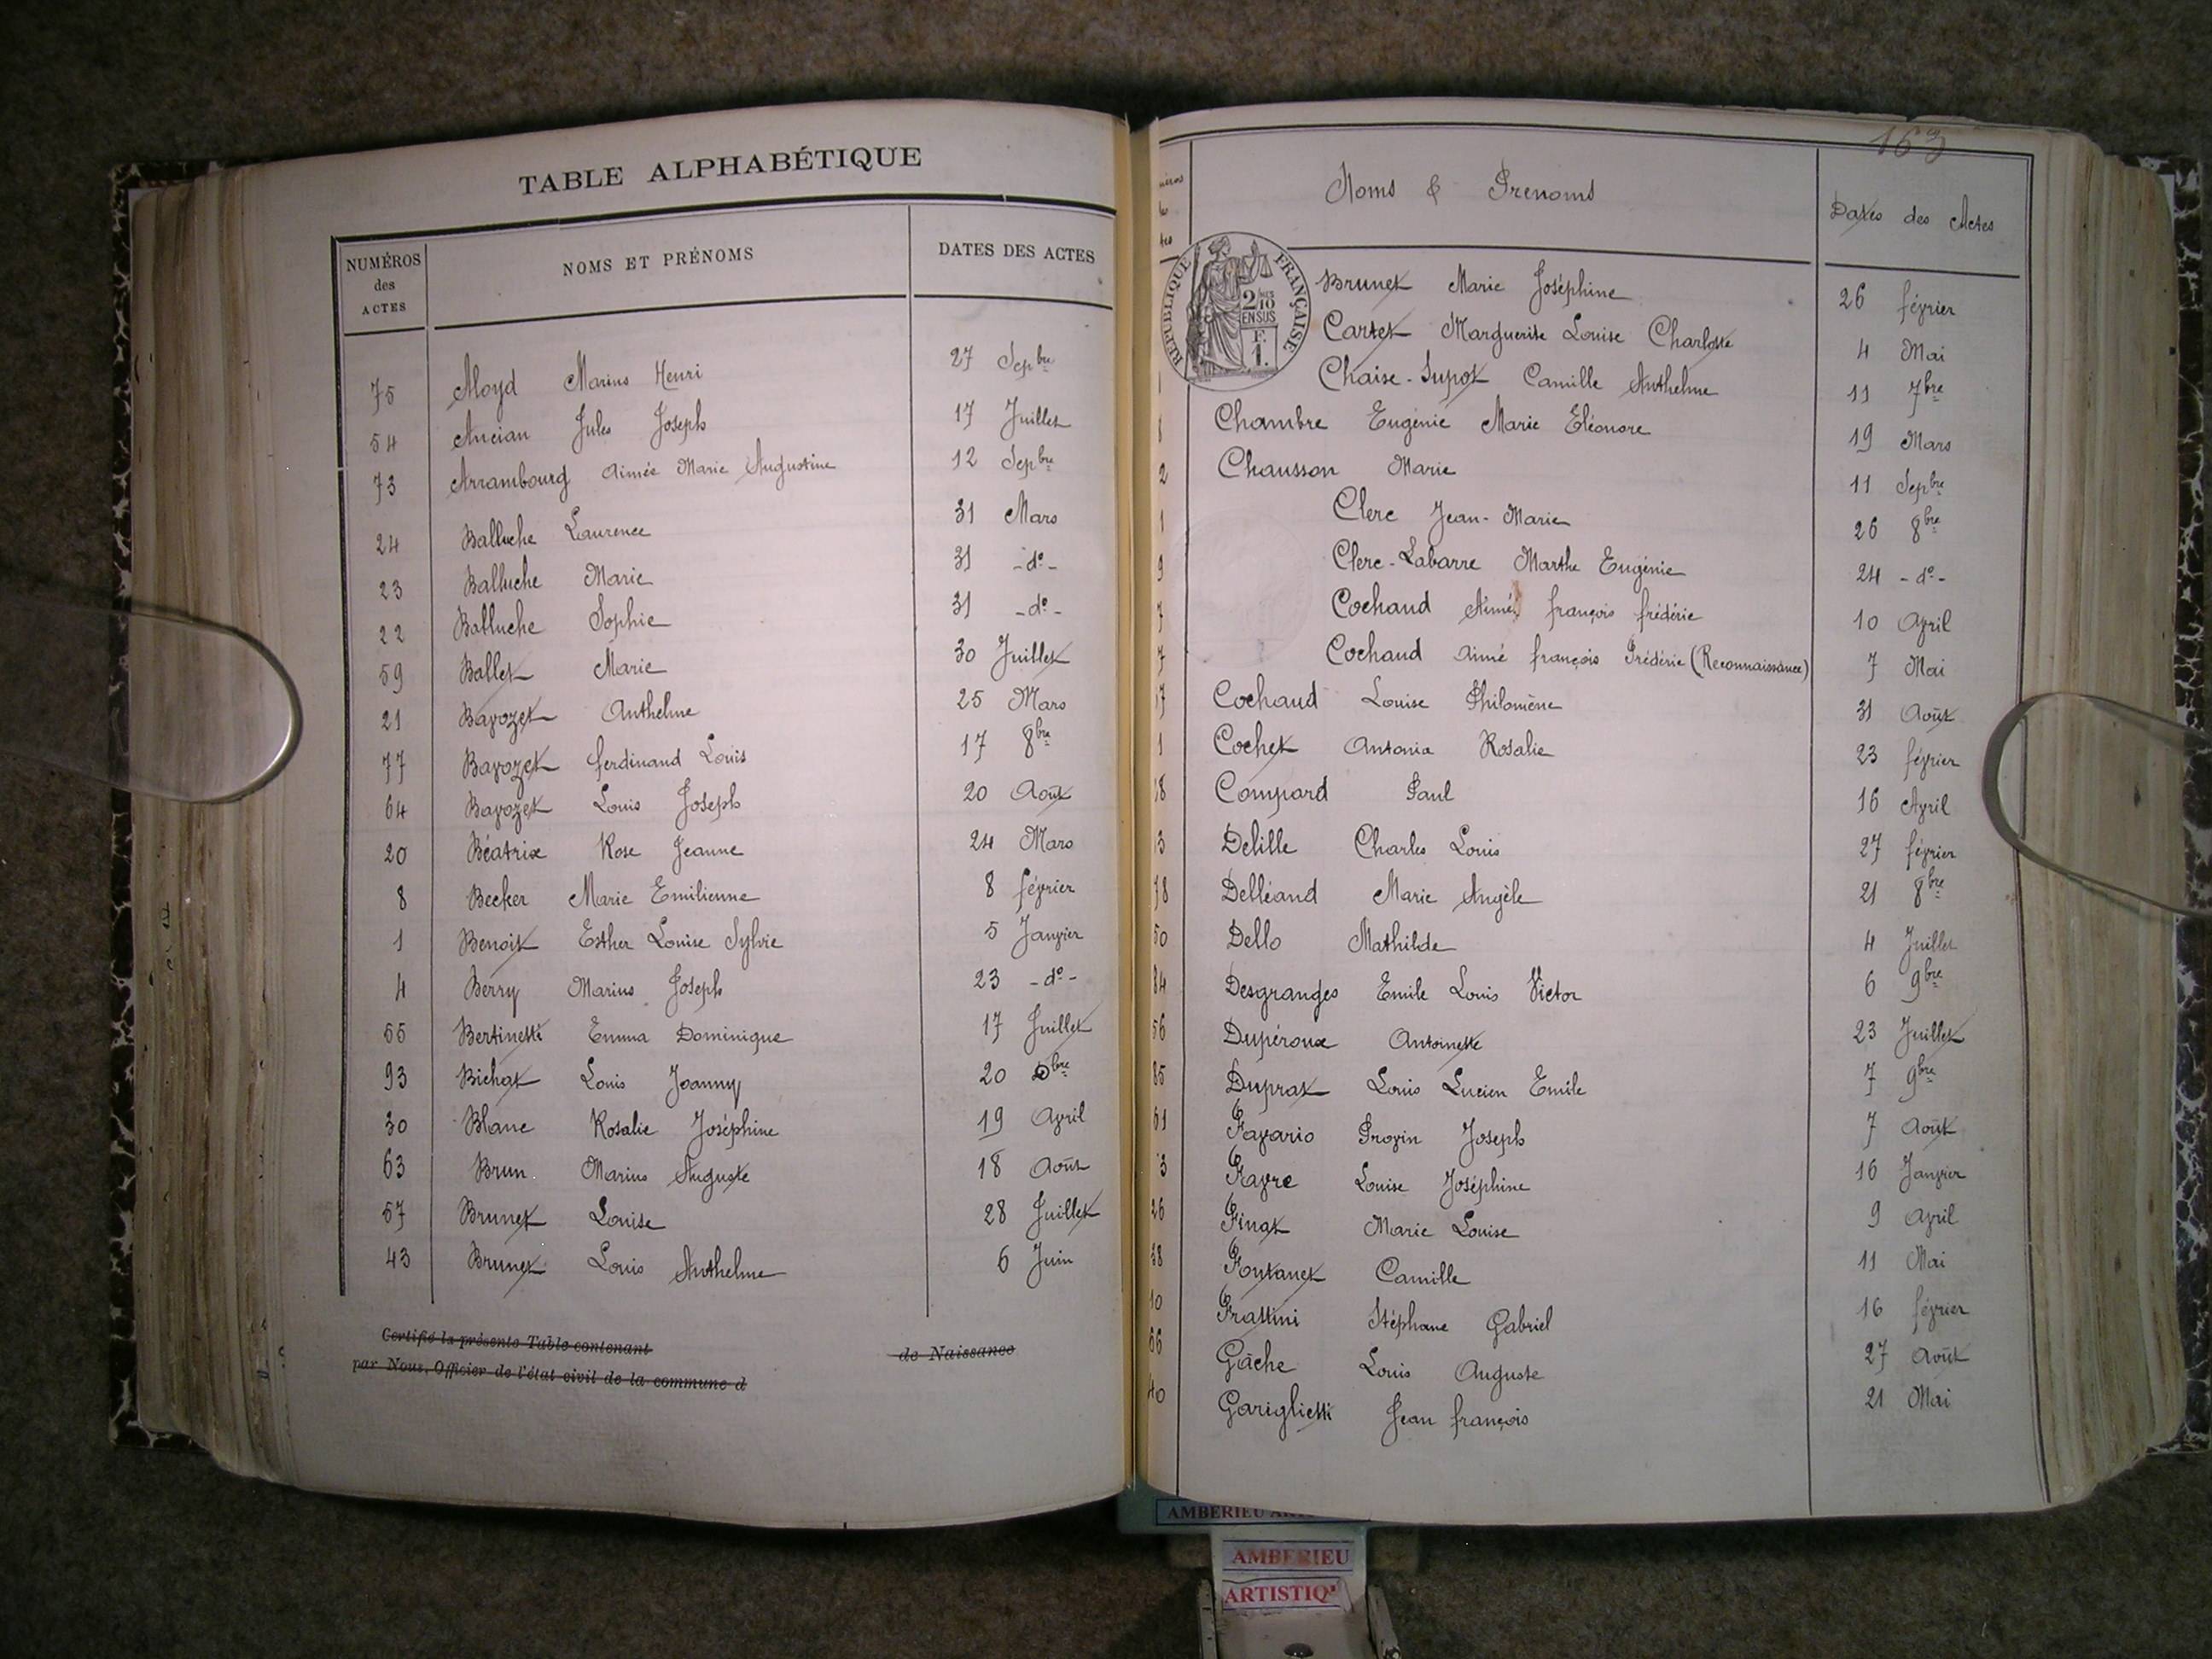 TABLE ALPHABÉTIQUE
NUMÉROS des ACTES NOMS ET PRÉNOMS DATES DES ACTES
75 Aloyd Marius Henri 27 Sepbre
54 Ancian Jules Joseph 17 Juillet
73 Arrambourg Aimée Marie Augustine 12 Sepbre
24 Balluche Laurence 31 Mars
23 Balluche Marie 31 -do-
22 Balluche Sophie 31 -do-
59 Ballet Marie 30 Juillet
21 Bavozet Anthelme 25 Mars
77 Bavozet ferdinand Louis 17 8bre
64 Bavozet Louis Joseph 20 Août
20 Béatrix Rose Jeanne 24 Mars
8 Becker Marie Emilienne 8 février
1 Benoit Esther Louise Sylvie 5 Janvier
4 Berry Marius Joseph 23 -do-
55 Bertinetti Emma Dominique 17 Juillet
93 Bichat Louis Joanny 20 Dbre
30 Blanc Rosalie Joséphine 19 Avril
63 Brun Marius Auguste 18 Août
57 Brunet Louise 28 Juillet
43 Brunet Louis Anthelme 6 Juin
Certifié la présente Table contenant de Naissance
par Nous, Officier de l'état civil de la commune d
163
Noms & Prenoms Dates des Actes
RÉPUBLIQUE FRANÇAISE
2/10 EN SUS
F. 1.
Brunet Marie Joséphine 26 février
Cartet Marguerite Louise Charlotte 4 Mai
Chaise-Supot Camille Anthelme 11 7bre
Chambre Eugénie Marie Eléonore 19 Mars
2 Chausson Marie 11 Sepbre
1 Clerc Jean-Marie 26 8bre
9 Clerc-Labarre Marthe Eugénie 24 -do-
7 Cochaud Aimé françois frédéric 10 Avril
7 Cochaud Aimé françois Frédéric (Reconnaissance) 7 Mai
7 Cochaud Louise Philomène 31 Août
1 Cochet Antonia Rosalie 23 février
8 Compard Paul 16 Avril
3 Delille Charles Louis 27 février
78 Delléand Marie Angèle 21 8bre
50 Dello Mathilde 4 Juillet
84 Desgranges Emile Louis Victor 6 9bre
56 Dupéroux Antoinette 23 Juillet
85 Duprat Louis Lucien Emile 7 9bre
61 Favario Provin Joseph 7 Août
3 Favre Louise Joséphine 16 Janvier
26 Finat Marie Louise 9 Avril
38 Fontanet Camille 11 Mai
10 Frattini Stéphane Gabriel 16 février
66 Gâche Louis Auguste 27 Août
40 Gariglietti Jean françois 21 Mai
AMBERIEU
AMBERIEU
ARTISTIQ